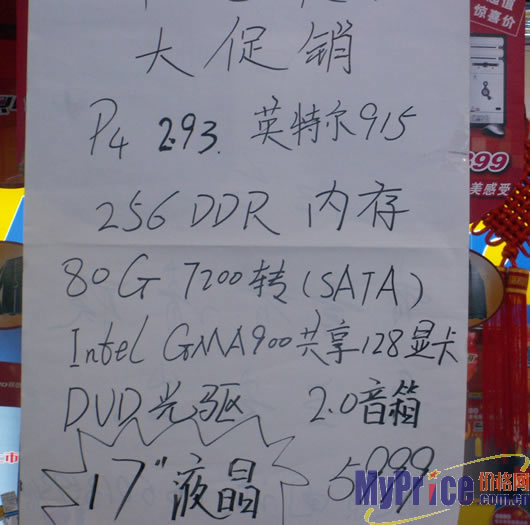 大促销
P4 2.93. 英特尔915
256 DDR 内存
80G 7200转(SATA)
Intel GMA900共享128显卡
DVD光驱 2.0音箱
17"液晶 5999
惊喜价
899
美感受
MyPrice价格网
.com.cn